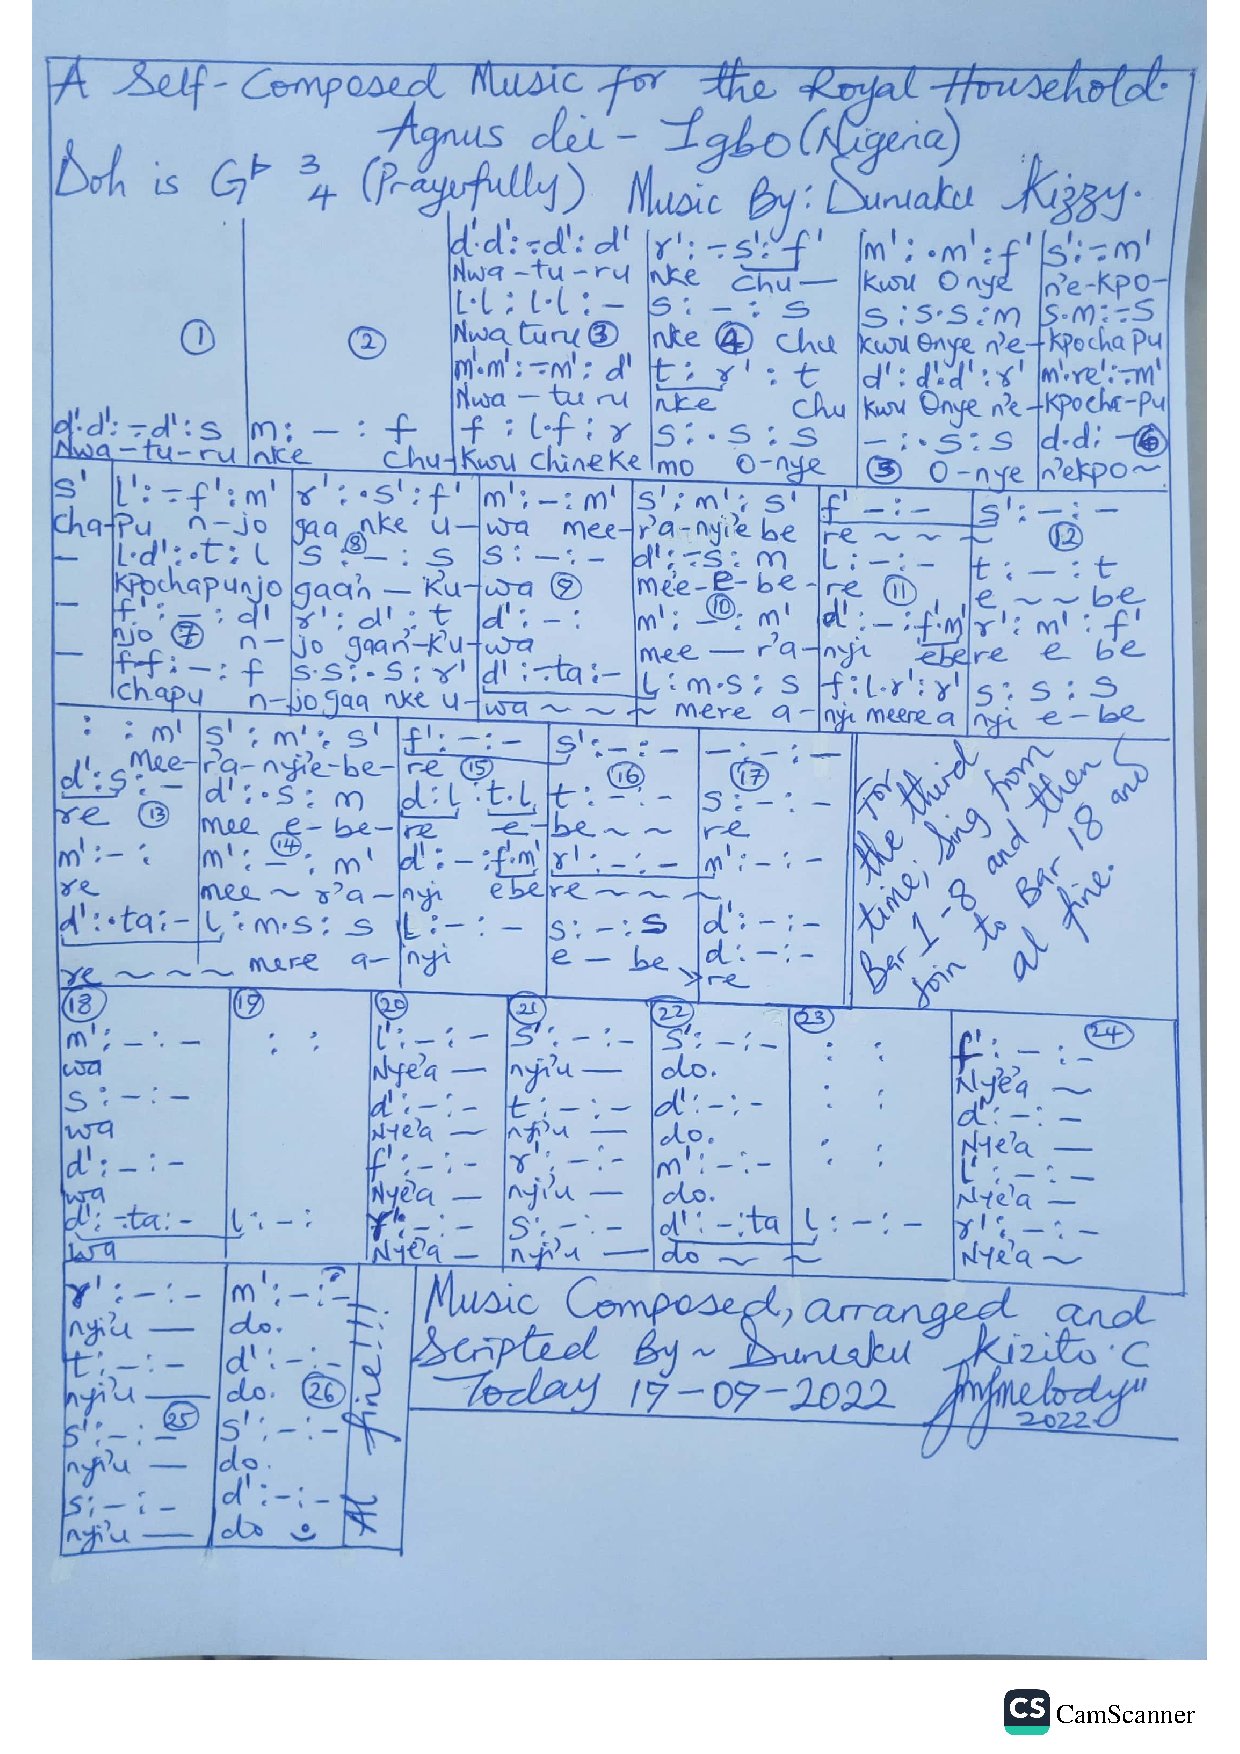 A Self-Composed Music for the Royal Household.
Agnus dei - Igbo (Nigeria)
Doh is G♭ 3/4 (Prayerfully) Music By: Duniaku Kizzy.
d'.d':-.d':d' r':-.s':f' m':.m':f' s':-.m'
Nwa-tu-ru nke chu— kwu Onye n'e-kpo-
l.l:l.l:- s:-:s s:s.s:m s.m:-.s
Nwa turu ③ nke ④ chu kwu Onye n'e-kpocha pu
① ②
m'.m':-.m':d' t:r':t d':d'.d':r' m'.re':-.m'
Nwa-tu ru nke chu kwu Onye n'e-kpocha-pu
d'.d':-.d':s m:-:f f:l.f:r s:.s:s -:.s:s d.d:- ⑥
Nwa-tu-ru nke chu-kwu chineke mo O-nye ⑤ O-nye n'ekpo~
s' l':-.f':m' r':.s':f' m':-:m' s':m':s' f':-:- s':-:-
cha-pu n-jo gaa nke u-wa mee-r'a-nyi'e be re ~ ~ ~ ~ ⑫
- l.d':.t:l s:-:s s:-:- d':-.s:m l:-:- t:-:t
kpochapunjo ⑧ gaa'n-k'u-wa ⑨ mee-e-be-re ⑪ e ~ ~ be
- f':-:d' r':d':t d':-: m':-:m' d':-:f'.m' r':m':f'
njo ⑦ n-jo gaan'-k'u-wa ⑩ mee — r'a-nyi ebere e be
- f.f:-:f s.s:.s:r' d':-.ta:- l:m.s:s f:l.r':r' s:s:s
chapu n-jo gaa nke u-wa ~ ~ ~ mere a-nyi meere a nyi e-be
: :m' s':m':s' f':-:- s':-:- -:-:-
Mee-r'a-nyi'e-be-re ⑮ ⑯ ⑰
d':s:- d':.s:m d:l:t.l t:-:- s:-:-
re ⑬ mee e-be-re e-be ~ ~ re
m':-: m':-:m' d':-:f'.m' r':-:- m':-:-
re ⑭ mee ~ r'a-nyi ebere ~ ~ ~ ~
d':.ta:- l:m.s:s l:-:- s:-:s d':-:-
d:-:-
re ~ ~ ~ ~ mere a-nyi e - be re
For
the third
time, Sing from
Bar 1-8 and then
Join to Bar 18 and
al fine.
⑱ ⑲ ⑳ ㉑ ㉒ ㉓ ㉔
m':-:- : : l':-:- s':-:- s':-:- : : f':-:-
wa Nye'a — nyi'u — do. Nye'a ~
s:-:- d':-:- t:-:- d':-:- : : d':-:-
wa Nye'a — nyi'u — do. Nye'a —
d':-:- f':-:- r':-:- m':-:- : : l':-:-
wa Nye'a — nyi'u — do. Nye'a —
d':-.ta:- l:-: r':-:- s:-:- d':-:ta l:-:- r':-:-
wa Nye'a — nyi'u — do ~ ~ Nye'a ~
r':-:- m':-:-
nyi'u — do.
t:-:- d':-:-
nyi'u — do. ㉖
s':-:- ㉕ s':-:-
nyi'u — do.
s:-:- d':-:-
nyi'u — do
Al fine!!!
Music Composed, arranged and
Scripted By ~ Duniaku Kizito.C
Today 17-09-2022 Jmjmelody"
2022.
CS CamScanner